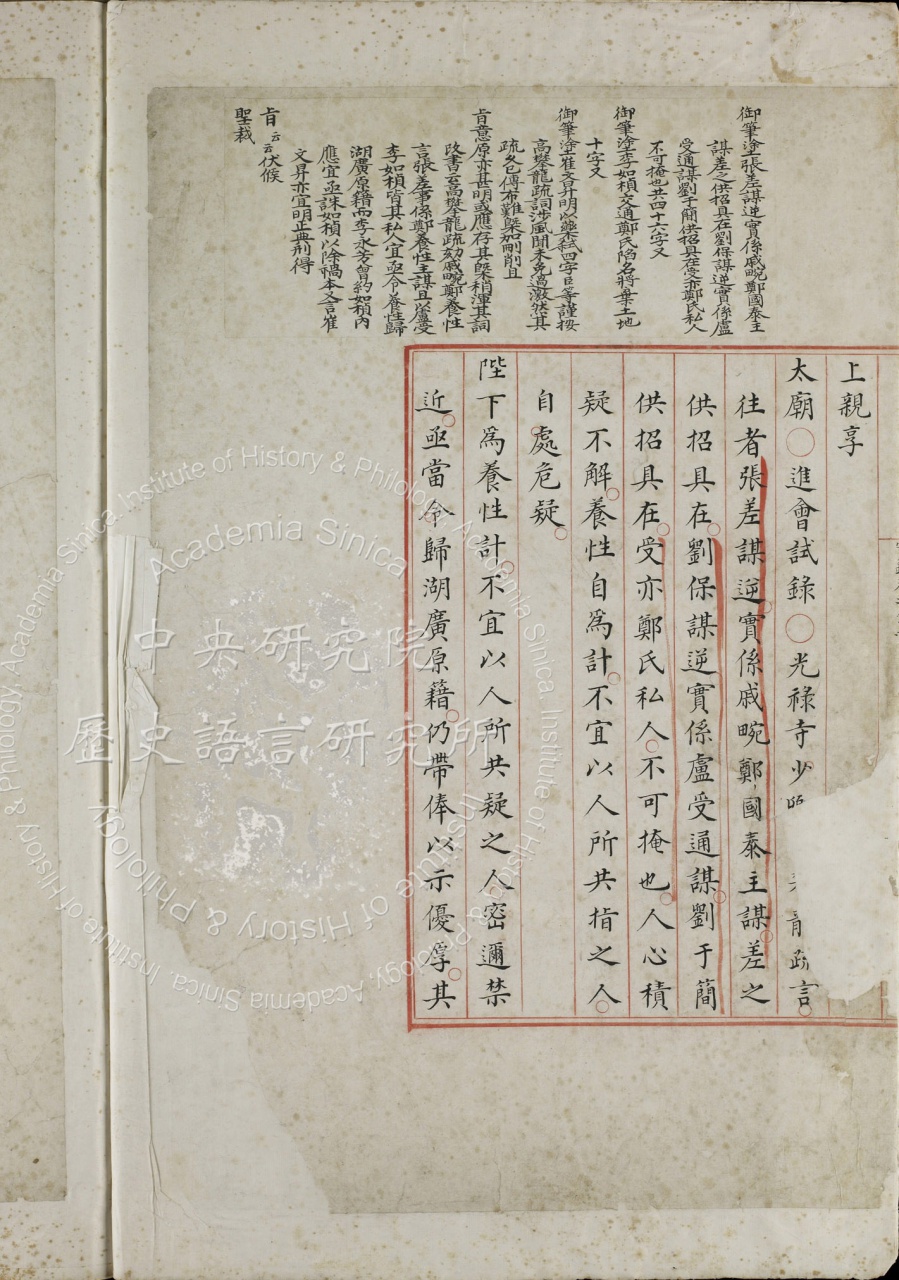 御筆塗張差謀逆實係戚畹鄭國泰主
謀差之供招具在劉保謀逆實係盧
受通謀劉于簡供招具在受亦鄭氏私人
不可掩也共四十六字又
御筆塗李如楨交通鄭氏陷名將棄土地
十字又
御筆塗崔文昇明以藥弒四字臣等謹按
高攀龍疏詞涉風聞未免過激然其
疏久已傳布難槩加刪削且
旨意原亦甚明或應存其槩稍渾其詞
改書云高攀龍疏劾戚畹鄭養性
言張差事係鄭養性主謀且以盧受
李如楨皆其私人宜亟令養性歸
湖廣原籍而李永芳曾約如楨內
應宜亟誅如楨以除禍本又言崔
文昇亦宜明正典刑得
旨云云伏候
聖裁
上親享
太廟〇進會試錄〇光祿寺少 疏言
往者張差謀逆實係戚畹鄭國泰主謀差之
供招具在劉保謀逆實係盧受通謀劉于簡
供招具在受亦鄭氏私人不可掩也人心積
疑不解養性自為計不宜以人所共指之人
自處危疑
陛下為養性計不宜以人所共疑之人密邇禁
近亟當令歸湖廣原籍仍帶俸以示優厚其
中央研究院
歷史語言研究所
Academia Sinica
Institute of History & Philology, Academia Sinica